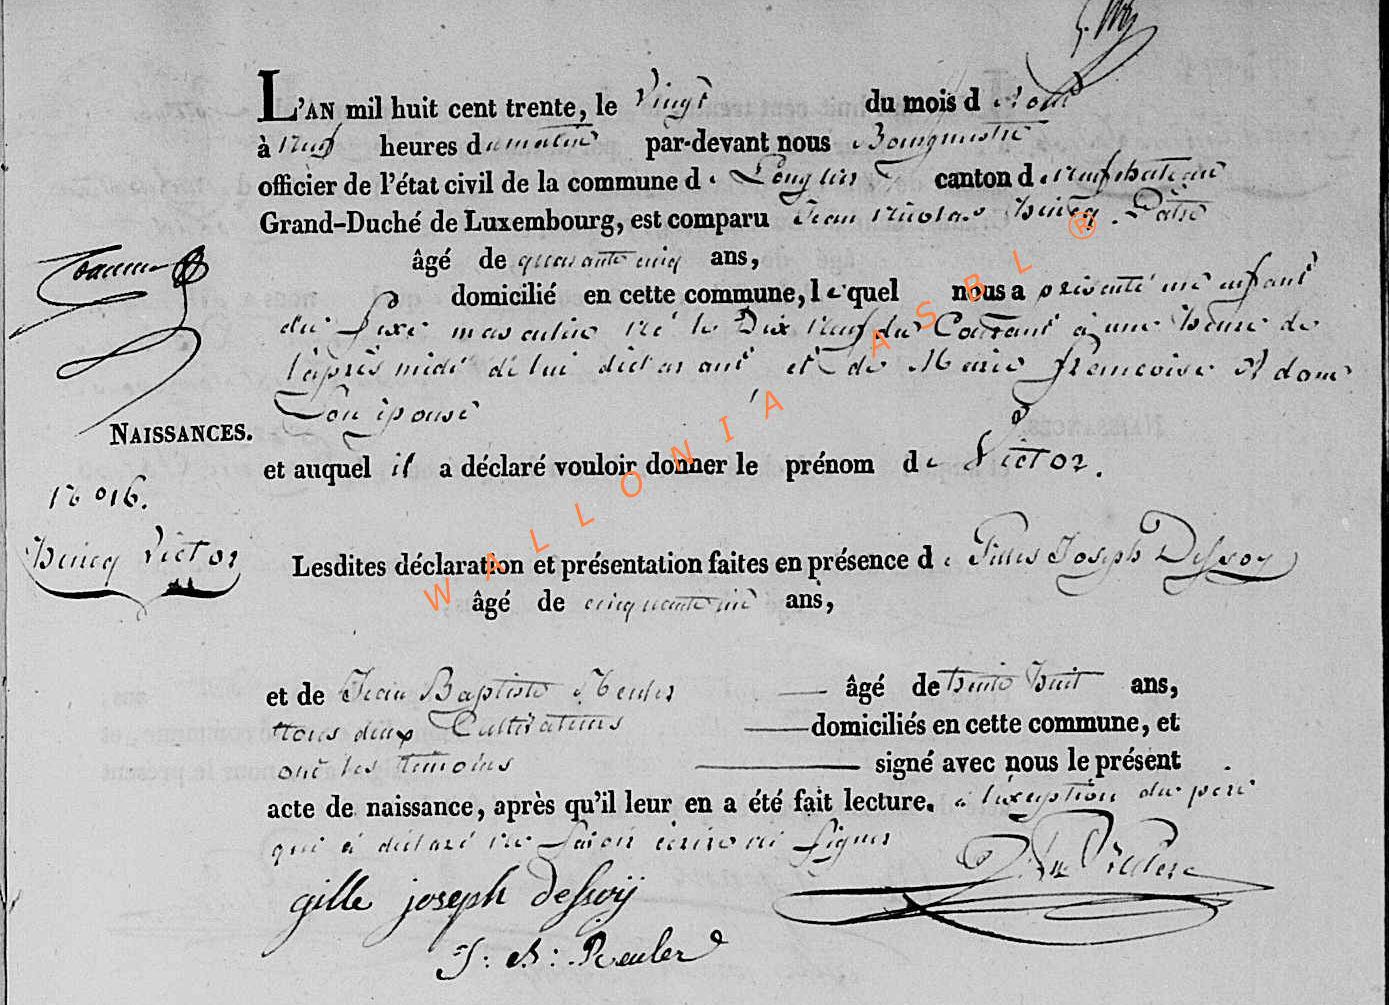 L'AN mil huit cent trente, le Vingt du mois d'Août
à Neuf heures du matin par-devant nous Bourguemestre
officier de l'état civil de la commune de Longlier canton de neufchateau
Grand-Duché de Luxembourg, est comparu Jean Nicolas Hincq. Patre
âgé de quarante cinq ans,
domicilié en cette commune, lequel nous a présenté un enfant
du sexe masculin né le Dix Neuf du Courant à une heure de
l'après midi de lui déclarant et de Marie françoise Adam
Son épouse
NAISSANCES.
et auquel il a déclaré vouloir donner le prénom de Victor.
N° 16.
Hincq Victor
Lesdites déclaration et présentation faites en présence de Gilles Joseph Dessoy
âgé de ans,
et de Jean Baptiste âgé de trente huit ans,
tous deux Cultivateurs domiciliés en cette commune, et
ont les témoins signé avec nous le présent
acte de naissance, après qu'il leur en a été fait lecture. à l'exception du père
qui a déclaré ne savoir écrire ni signer
gille joseph dessoij
J: B: Reuler
WALLONIA ASBL ®